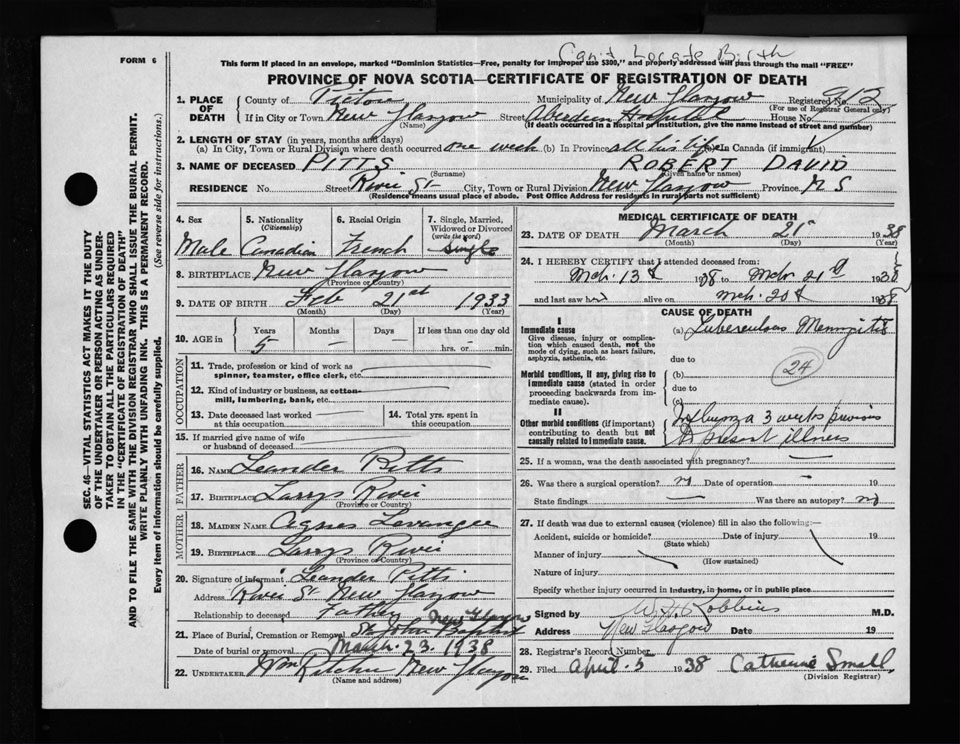 Can't Locate Birth
FORM 6
This form if placed in an envelope, marked "Dominion Statistics—Free, penalty for improper use $300," and properly addressed will pass through the mail "FREE"
PROVINCE OF NOVA SCOTIA—CERTIFICATE OF REGISTRATION OF DEATH
SEC. 46—VITAL STATISTICS ACT MAKES IT THE DUTY
OF THE UNDERTAKER OR PERSON ACTING AS UNDER-
TAKER TO OBTAIN ALL THE PARTICULARS REQUIRED
IN THE "CERTIFICATE OF REGISTRATION OF DEATH"
AND TO FILE THE SAME WITH THE DIVISION REGISTRAR WHO SHALL ISSUE THE BURIAL PERMIT.
WRITE PLAINLY WITH UNFADING INK. THIS IS A PERMANENT RECORD.
Every item of information should be carefully supplied. (See reverse side for instructions.)
1. PLACE OF DEATH County of Pictou Municipality of New Glasgow Registered No. 912
(For use of Registrar General only)
If in City or Town New Glasgow Street Aberdeen Hospital House No.
(Name) (If death occurred in a Hospital or Institution, give the name instead of street and number)
2. LENGTH OF STAY (in years, months and days)
(a) In City, Town or Rural Division where death occurred one week (b) In Province all his life (c) In Canada (if immigrant)
3. NAME OF DECEASED PITTS ROBERT DAVID
(Surname) (Given name or names)
RESIDENCE No. Street River St City, Town or Rural Division New Glasgow Province N S
(Residence means usual place of abode. Post Office Address for residents in rural parts not sufficient)
4. Sex
Male
5. Nationality
(Citizenship)
Canadian
6. Racial Origin
French
7. Single, Married,
Widowed or Divorced
(write the word)
single
8. BIRTHPLACE New Glasgow
(Province or Country)
9. DATE OF BIRTH Feb 21st 1933
(Month) (Day) (Year)
10. AGE in Years Months Days If less than one day old
5 – – hrs. or – min.
OCCUPATION
11. Trade, profession or kind of work as
spinner, teamster, office clerk, etc.
12. Kind of industry or business, as cotton-
mill, lumbering, bank, etc.
13. Date deceased last worked
at this occupation
14. Total yrs. spent in
this occupation
15. If married give name of wife
or husband of deceased
FATHER
16. NAME Leander Pitts
17. BIRTHPLACE Larrys River
(Province or Country)
MOTHER
18. MAIDEN NAME Agnes Levangie
19. BIRTHPLACE Larrys River
(Province or Country)
20. Signature of informant Leander Pitts
Address River St New Glasgow
Relationship to deceased Father
21. Place of Burial, Cremation or Removal St John New Glasgow
Date of burial or removal March 23. 1938
22. UNDERTAKER Wm Ritchie New Glasgow
(Name and address)
MEDICAL CERTIFICATE OF DEATH
23. DATE OF DEATH March 21st 1938
(Month) (Day) (Year)
24. I HEREBY CERTIFY that I attended deceased from:
Mch. 13th 1938 to Mch 21st 1938
and last saw him alive on Mch. 20th 1938
CAUSE OF DEATH
I
Immediate cause
Give disease, injury or complica-
tion which caused death, not the
mode of dying, such as heart failure,
asphyxia, asthenia, etc.
(a) Tuberculous Meningitis
due to
24
Morbid conditions, if any, giving rise to
immediate cause (stated in order
proceeding backwards from im-
mediate cause).
(b)
due to
(c)
II
Other morbid conditions (if important)
contributing to death but not
causally related to immediate cause.
Influenza 3 weeks previous
to present illness
25. If a woman, was the death associated with pregnancy?
26. Was there a surgical operation? no Date of operation – 19
State findings – Was there an autopsy? no
27. If death was due to external causes (violence) fill in also the following:—
Accident, suicide or homicide? Date of injury 19
(State which)
Manner of injury
(How sustained)
Nature of injury
Specify whether injury occurred in industry, in home, or in public place
Signed by W.H. Robbins M.D.
Address New Glasgow Date 19
28. Registrar's Record Number
29. Filed April 5 1938 Catherine Small
(Division Registrar)